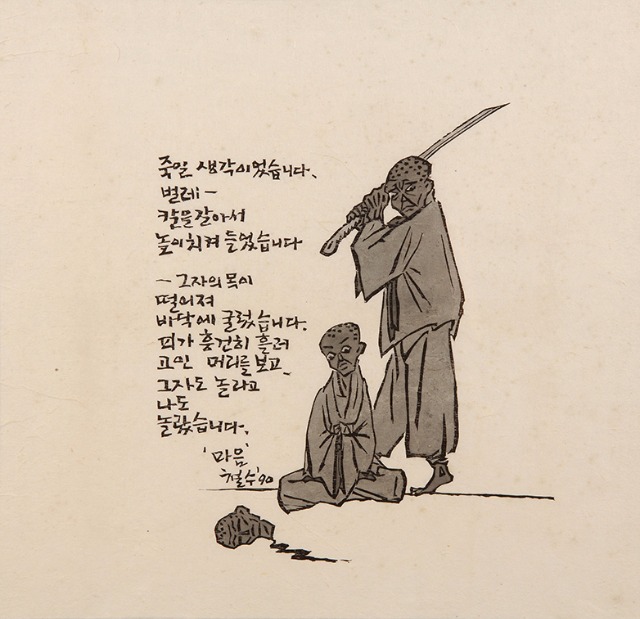 죽일 생각이었습니다.
벌레 —
칼을갈아서
높이치켜 들었습니다
— 그자의 목이
떨어져
바닥에 굴렀습니다.
피가 흥건히 흘러
고인 머리를 보고
그자도 놀라고
나도
놀랐습니다.
'마음'
철수 '90